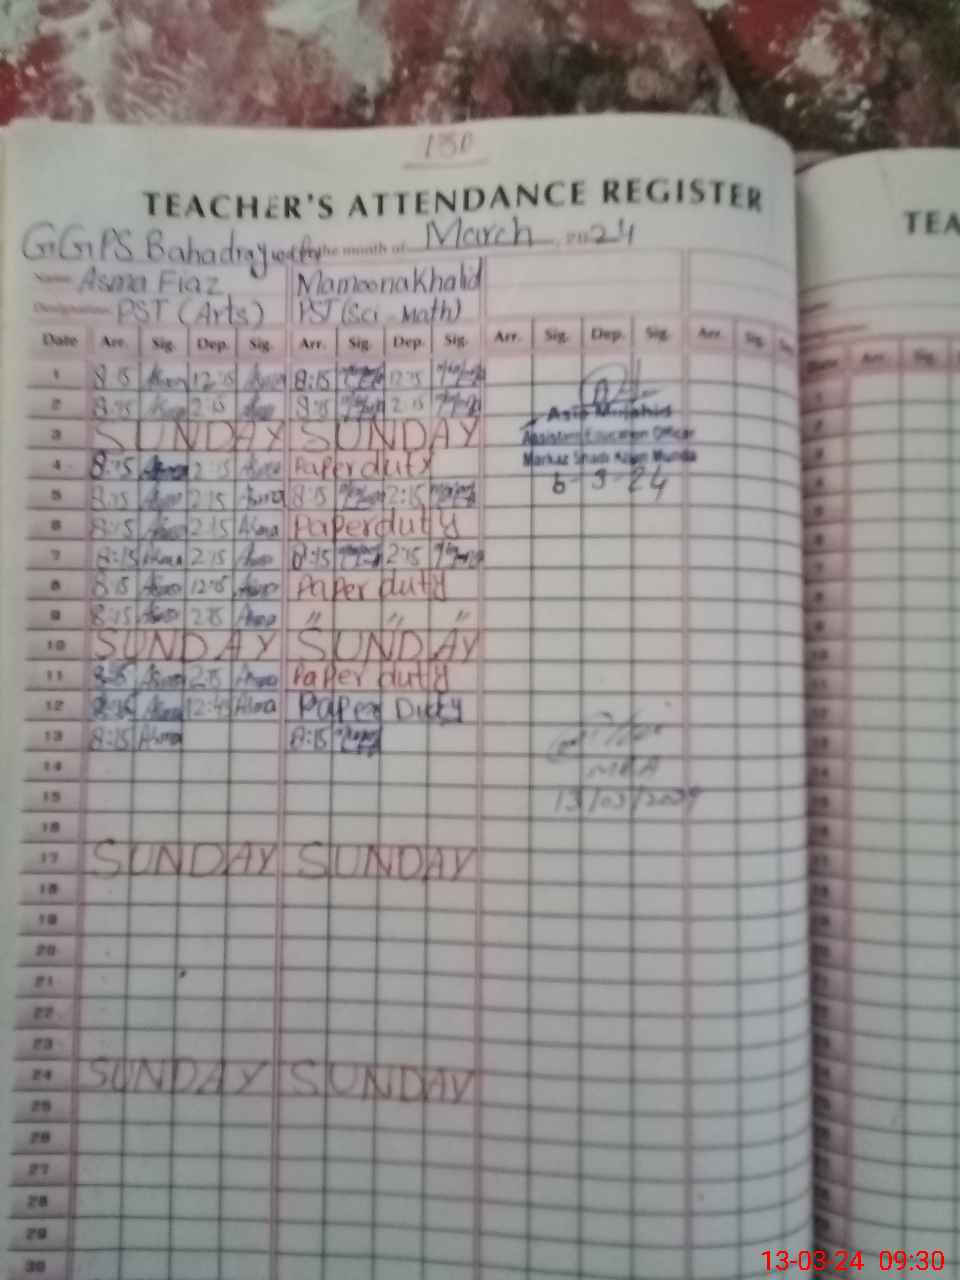 150
TEACHER'S ATTENDANCE REGISTER TEA
GGPS Bahadray for the month of March, 2024
Name Asma Fiaz Mamoona Khalid
Designation PST (Arts) PST (Sci - Math)
Date Arr. Sig. Dep. Sig. Arr. Sig. Dep. Sig. Arr. Sig. Dep. Sig. Arr. Sig. Date Arr. Sig.
1 8:15 Asma 12:15 Asma 8:15 12:15
2 8:15 Asma 2:15 Asma 8:15 2:15
3 SUNDAY SUNDAY
Assistant Education Officer
4 8:15 Asma 2:15 Asma Paper duty
Markaz
5 8:15 Asma 2:15 Asma 8:15 2:15
6-3-24
6 8:15 Asma 2:15 Asma Paper duty
7 8:15 Asma 2:15 Asma 8:15 2:15
8 8:15 Asma 12:15 Asma Paper duty
9 8:15 Asma 2:15 Asma " " "
10 SUNDAY SUNDAY
11 8:15 Asma 2:15 Asma Paper duty
12 8:15 Asma 12:45 Asma Paper Duty
13 8:15 Asma 8:15
14
MEA
15
13/03/2024
16
17 SUNDAY SUNDAY
18
19
20
21
22
23
24 SUNDAY SUNDAY
25
26
27
28
29
30
13-03-24 09:30